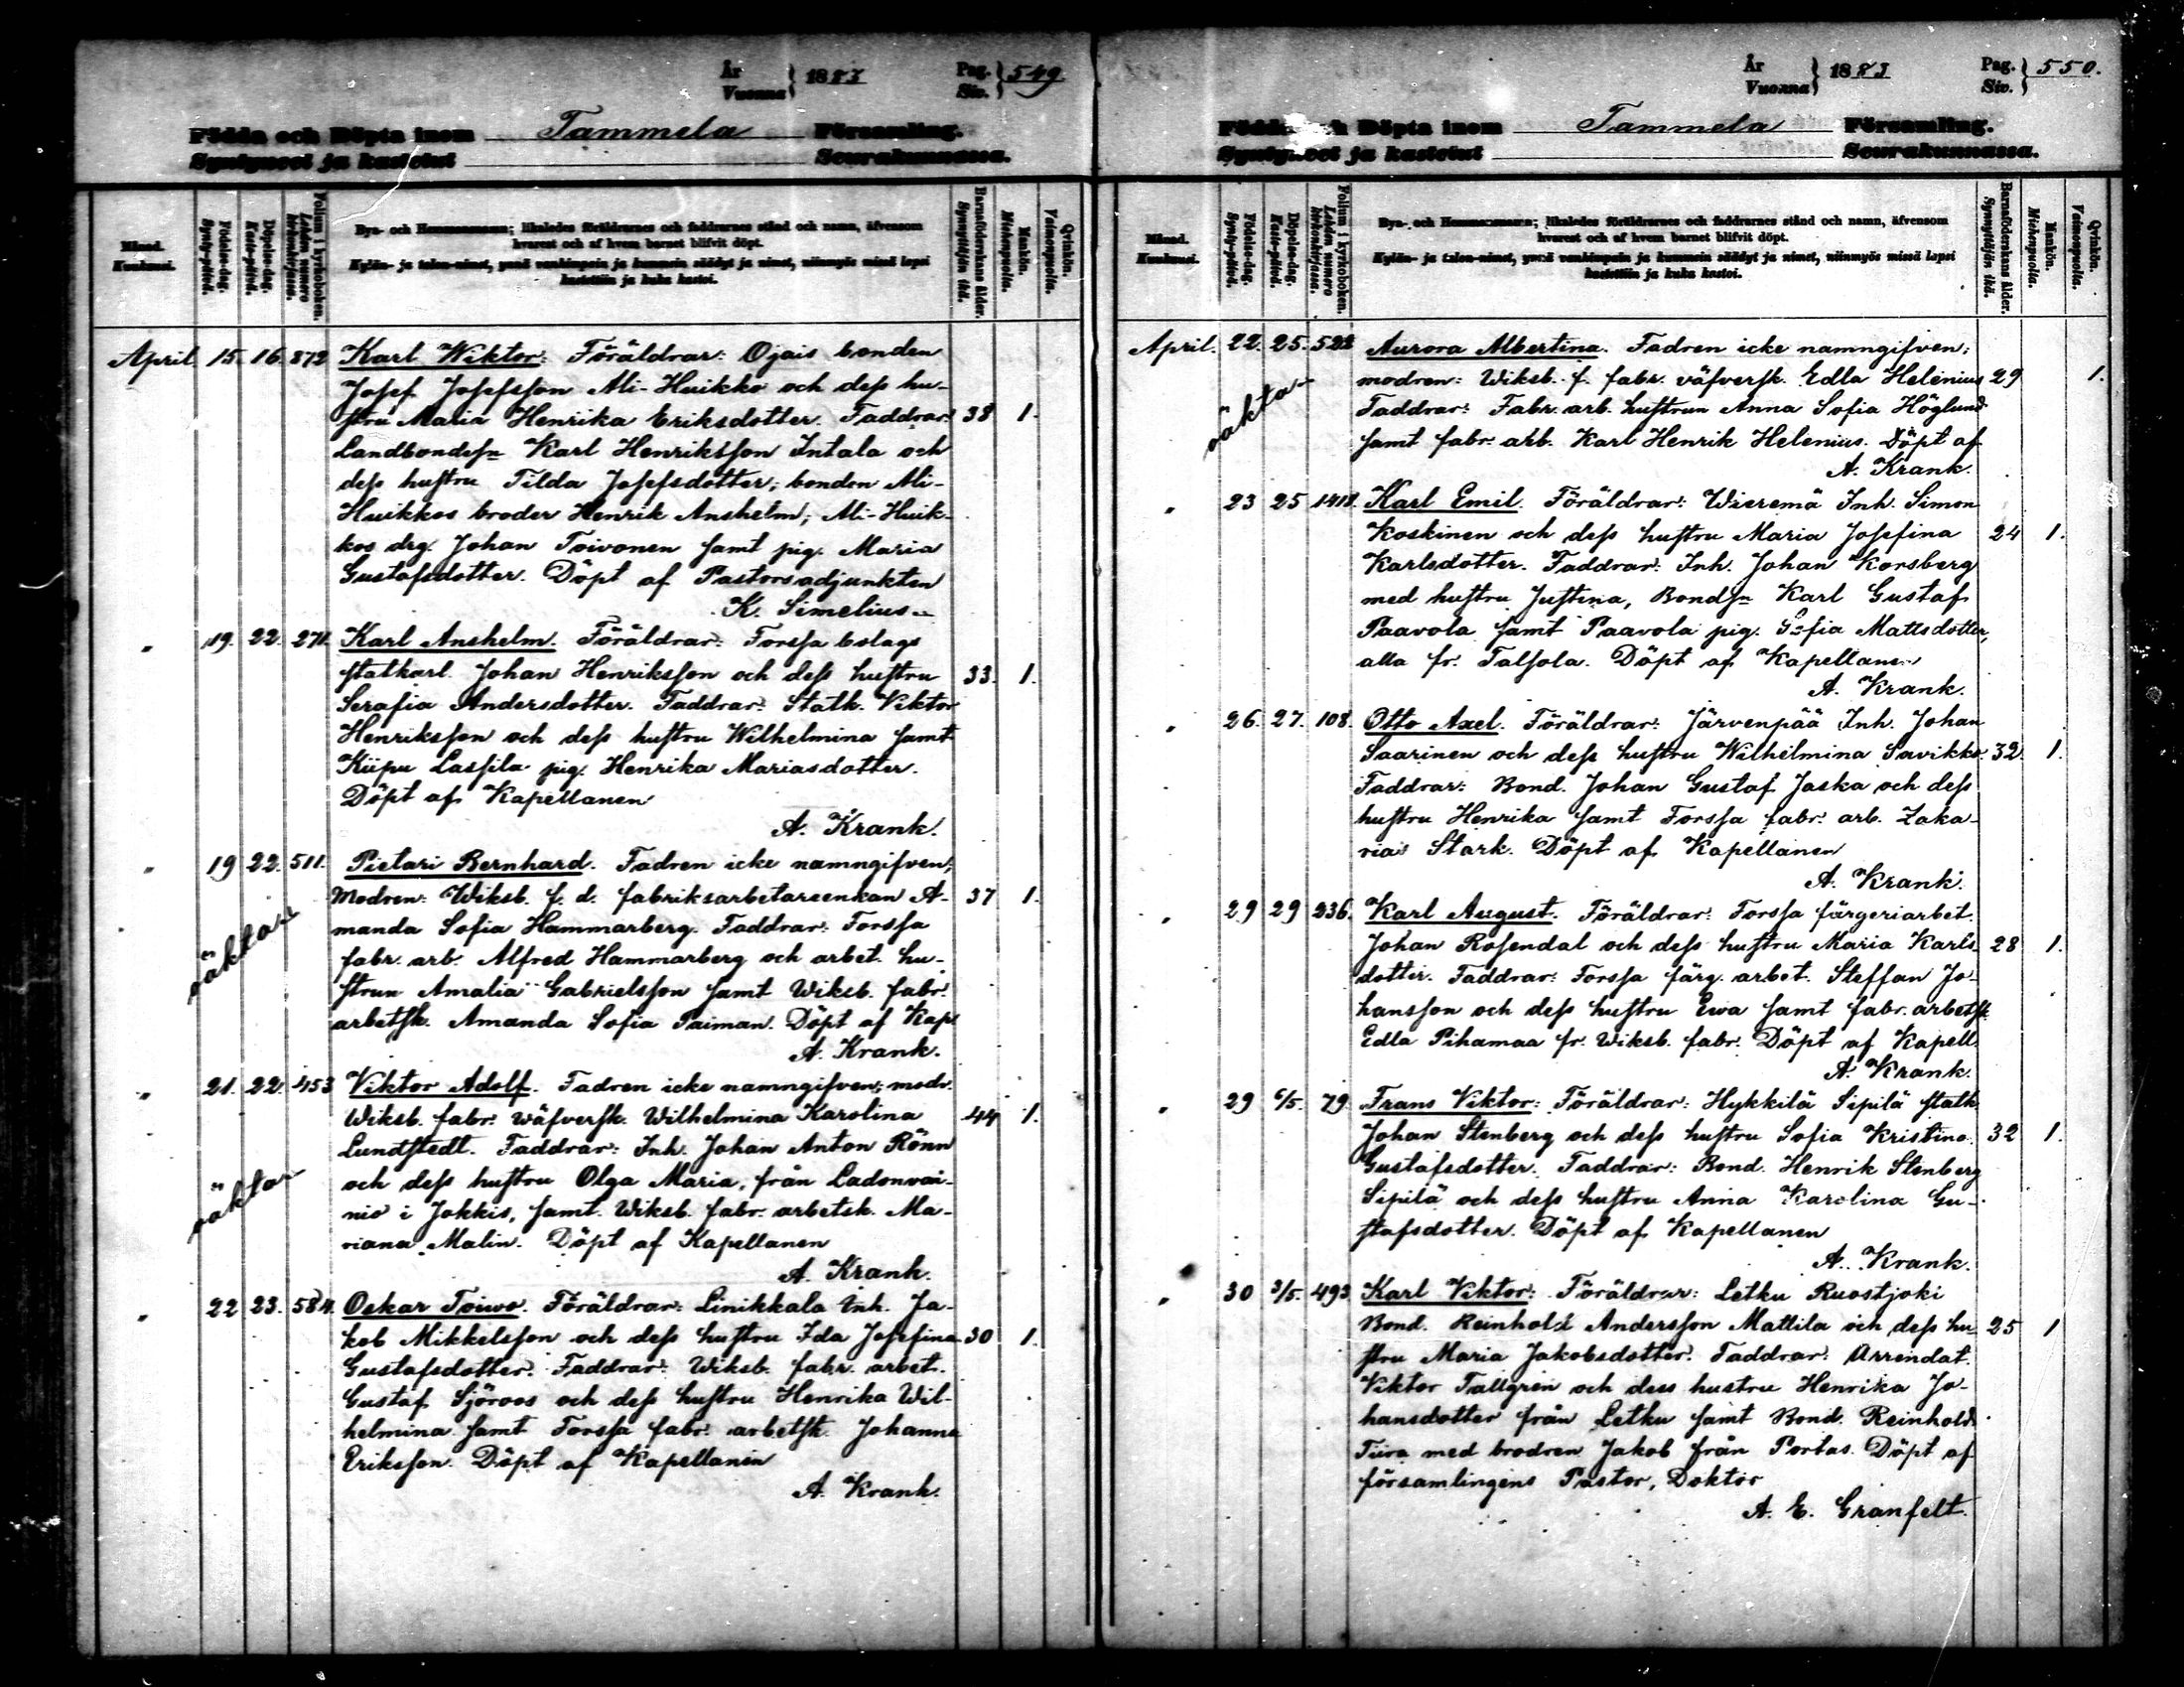 År
Vuonna } 1883 Pag.
Siv. } 549
Födda och Döpta inom Tammela Församling.
Syntyneet ja kastetut Seurakunnassa.
Månad.
Kuukausi.
Födelse-dag.
Synty-päivä.
Döpelse-dag.
Kaste-päivä.
Folium i kyrkoboken.
Lehden numero kirkonkirjassa.
Byn- och Hemmansnamn; likaledes föräldrarnes och faddrarnes stånd och namn, äfvensom
hvarest och af hvem barnet blifvit döpt.
Kylän- ja talon-nimet, ynnä vanhimpain ja kummein säädyt ja nimet, niinmyös missä lapsi
kastettiin ja kuka kastoi.
Barnaföderskans ålder.
Synnyttäjän ikä.
Mankön.
Miehenpuolia.
Qvinkön.
Vaimonpuolia.
April 15. 16. 872 Karl Wiktor: Föräldrar: Ojais bonden
Josef Josefsson Ali-Huikko och dess hu-
stru Maria Henrika Eriksdotter. Faddrar: 38 1.
Landbondesn Karl Henriksson Intala och
dess hustru Tilda Josefsdotter; bonden Ali-
Huikkos broder Henrik Anshelm; Ali-Huik-
kos drg. Johan Toivonen samt pig. Maria
Gustafsdotter. Döpt af Pastorsadjunkten
K. Simelius
" 19. 22. 271. Karl Anshelm. Föräldrar: Forssa bolags
statkarl Johan Henriksson och dess hustru 33. 1.
Serafia Andersdotter. Faddrar: Statk. Viktor
Henriksson och dess hustru Wilhelmina samt
Kiipu Lassila pig. Henrika Mariasdotter.
Döpt af Kapellanen
A. Krank.
" 19 22. 511. Pietari Bernhard. Fadren icke namngifven;
Modren: Wiksb. f. d. fabriksarbetareenkan A- 37 1.
oäkta
manda Sofia Hammarberg. Faddrar: Forssa
fabr. arb. Alfred Hammarberg och arbet. hu-
strun Amalia Gabrielsson samt Wiksb. fabr.
arbetsk. Amanda Sofia Paiman. Döpt af Kap.
A. Krank.
" 21. 22. 453 Viktor Adolf. Fadren icke namngifven; modr.
Wiksb. fabr. wäfversk. Wilhelmina Karolina 44 1.
Lundstedt. Faddrar: Inh. Johan Anton Rönn
oäkta
och dess hustru Olga Maria, från Ladonvai-
nio i Jokkis, samt. Wiksb. fabr. arbetsk. Ma-
riana Malin. Döpt af Kapellanen
A. Krank.
" 22 23. 584. Oskar Toiwo. Föräldrar: Linikkala Inh. Ja-
kob Mikkelsson och dess hustru Ida Josefina 30 1.
Gustafsdotter. Faddrar: Wiksb. fabr. arbet.
Gustaf Sjöroos och dess hustru Henrika Wil-
helmina samt Forssa fabr. arbetsk. Johanna
Eriksson. Döpt af Kapellanen
A. Krank.
År
Vuonna } 1883 Pag.
Siv. } 550.
Födda och Döpta inom Tammela Församling.
Syntyneet ja kastetut Seurakunnassa.
Månad.
Kuukausi.
Födelse-dag.
Synty-päivä.
Döpelse-dag.
Kaste-päivä.
Folium i kyrkoboken.
Lehden numero kirkonkirjassa.
Byn- och Hemmansnamn; likaledes föräldrarnes och faddrarnes stånd och namn, äfvensom
hvarest och af hvem barnet blifvit döpt.
Kylän- ja talon-nimet, ynnä vanhimpain ja kummein säädyt ja nimet, niinmyös missä lapsi
kastettiin ja kuka kastoi.
Barnaföderskans ålder.
Synnyttäjän ikä.
Mankön.
Miehenpuolia.
Qvinkön.
Vaimonpuolia.
April. 22. 25. 522 Aurora Albertina. Fadren icke namngifven;
modren: Wiksb. f. fabr. väfversk. Edla Helenius 29 1.
oäkta
Faddrar: Fabr. arb. hustrun Anna Sofia Höglund
samt fabr. arb. Karl Henrik Helenius. Döpt af
A. Krank.
" 23 25 1418. Karl Emil. Föräldrar: Wieremä Inh. Simon
Koskinen och dess hustru Maria Josefina 24 1.
Karlsdotter. Faddrar: Inh. Johan Korsberg
med hustru Justina, Bondsn Karl Gustaf
Paavola samt Paavola pig. Sofia Mattsdotter,
alla fr. Talsola. Döpt af Kapellanen
A. Krank.
" 26. 27. 108. Otto Axel. Föräldrar: Järvenpää Inh. Johan
Saarinen och dess hustru Wilhelmina Savikko. 32. 1.
Faddrar: Bond. Johan Gustaf Jaska och dess
hustru Henrika samt Forssa fabr. arb. Zaka-
rias Stark. Döpt af Kapellanen
A. Krank.
" 29 29 236. Karl August. Föräldrar: Forssa färgeriarbet.
Johan Rosendal och dess hustru Maria Karls- 28 1.
dotter. Faddrar: Forssa färg. arbet. Steffan Jo-
hansson och dess hustru Ewa samt fabr. arbetsk.
Edla Pihamaa fr. Wiksb. fabr. Döpt af Kapell.
A. Krank.
" 29 6/5. 79. Frans Viktor: Föräldrar: Hykkilä Sipilä statk
Johan Stenberg och dess hustru Sofia Kristina 32 1.
Gustafsdotter. Faddrar: Bond. Henrik Stenberg
Sipilä och dess hustru Anna Karolina Gu-
stafsdotter. Döpt af Kapellanen
A. Krank.
" 30 3/5. 493 Karl Viktor: Föräldrar: Letku Ruostjoki
Bond. Reinhold Andersson Mattila och dess hu- 25 1
stru Maria Jakobsdotter. Faddrar: Arrendat.
Viktor Tallgren och dess hustru Henrika Jo-
hansdotter från Letku samt Bond. Reinhold
Tiira med brodren Jakob från Portas. Döpt af
församlingens Pastor, Doktor
A. E. Granfelt.